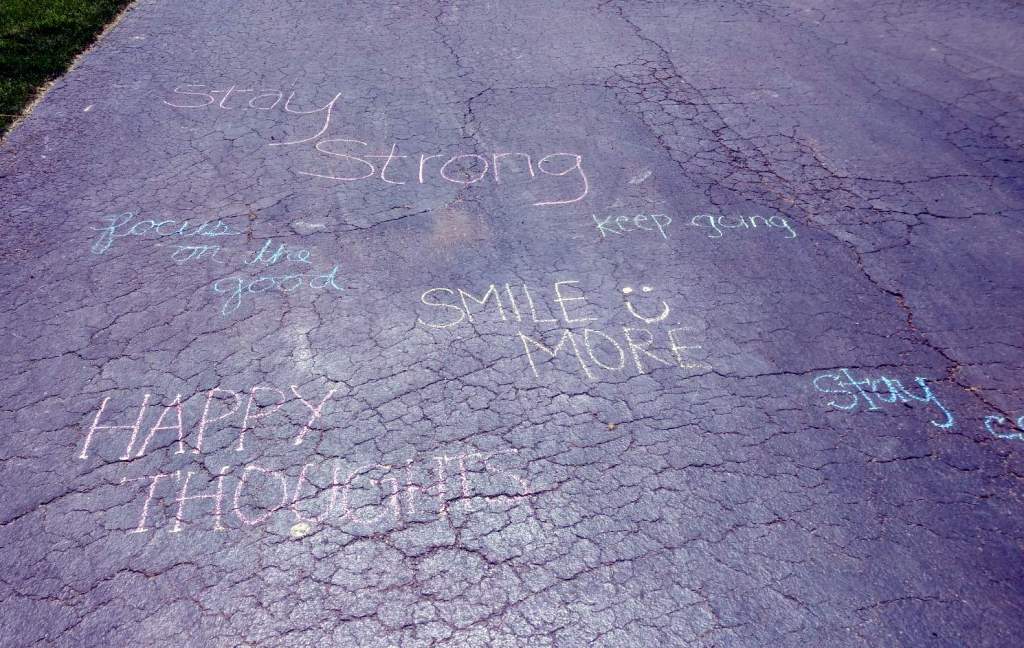 stay
Strong
focus
on the
good
keep going
SMILE
MORE
HAPPY
THOUGHTS
stay